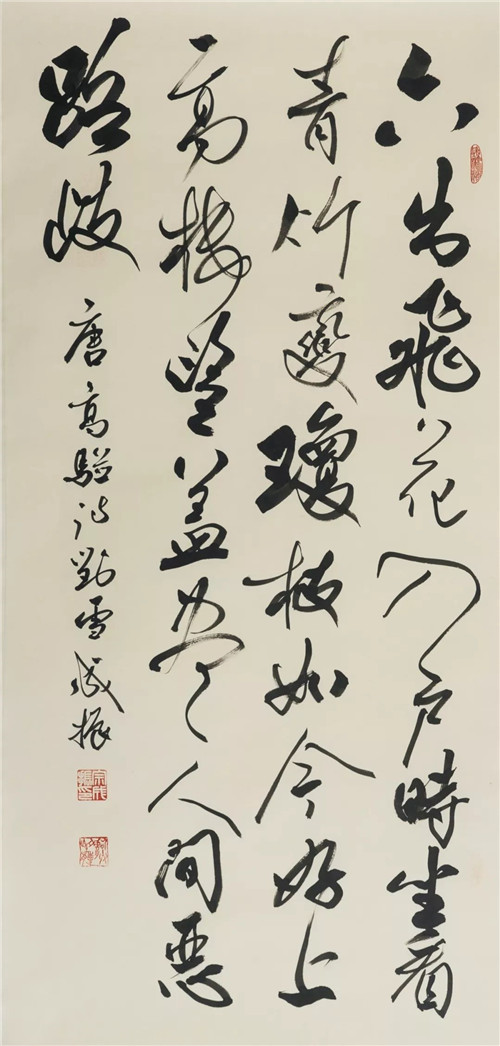 六出飛花入户時坐看
青竹變瓊枝如今好上
高樓望蓋盡人間惡
路歧
唐高駢詩對雪成振